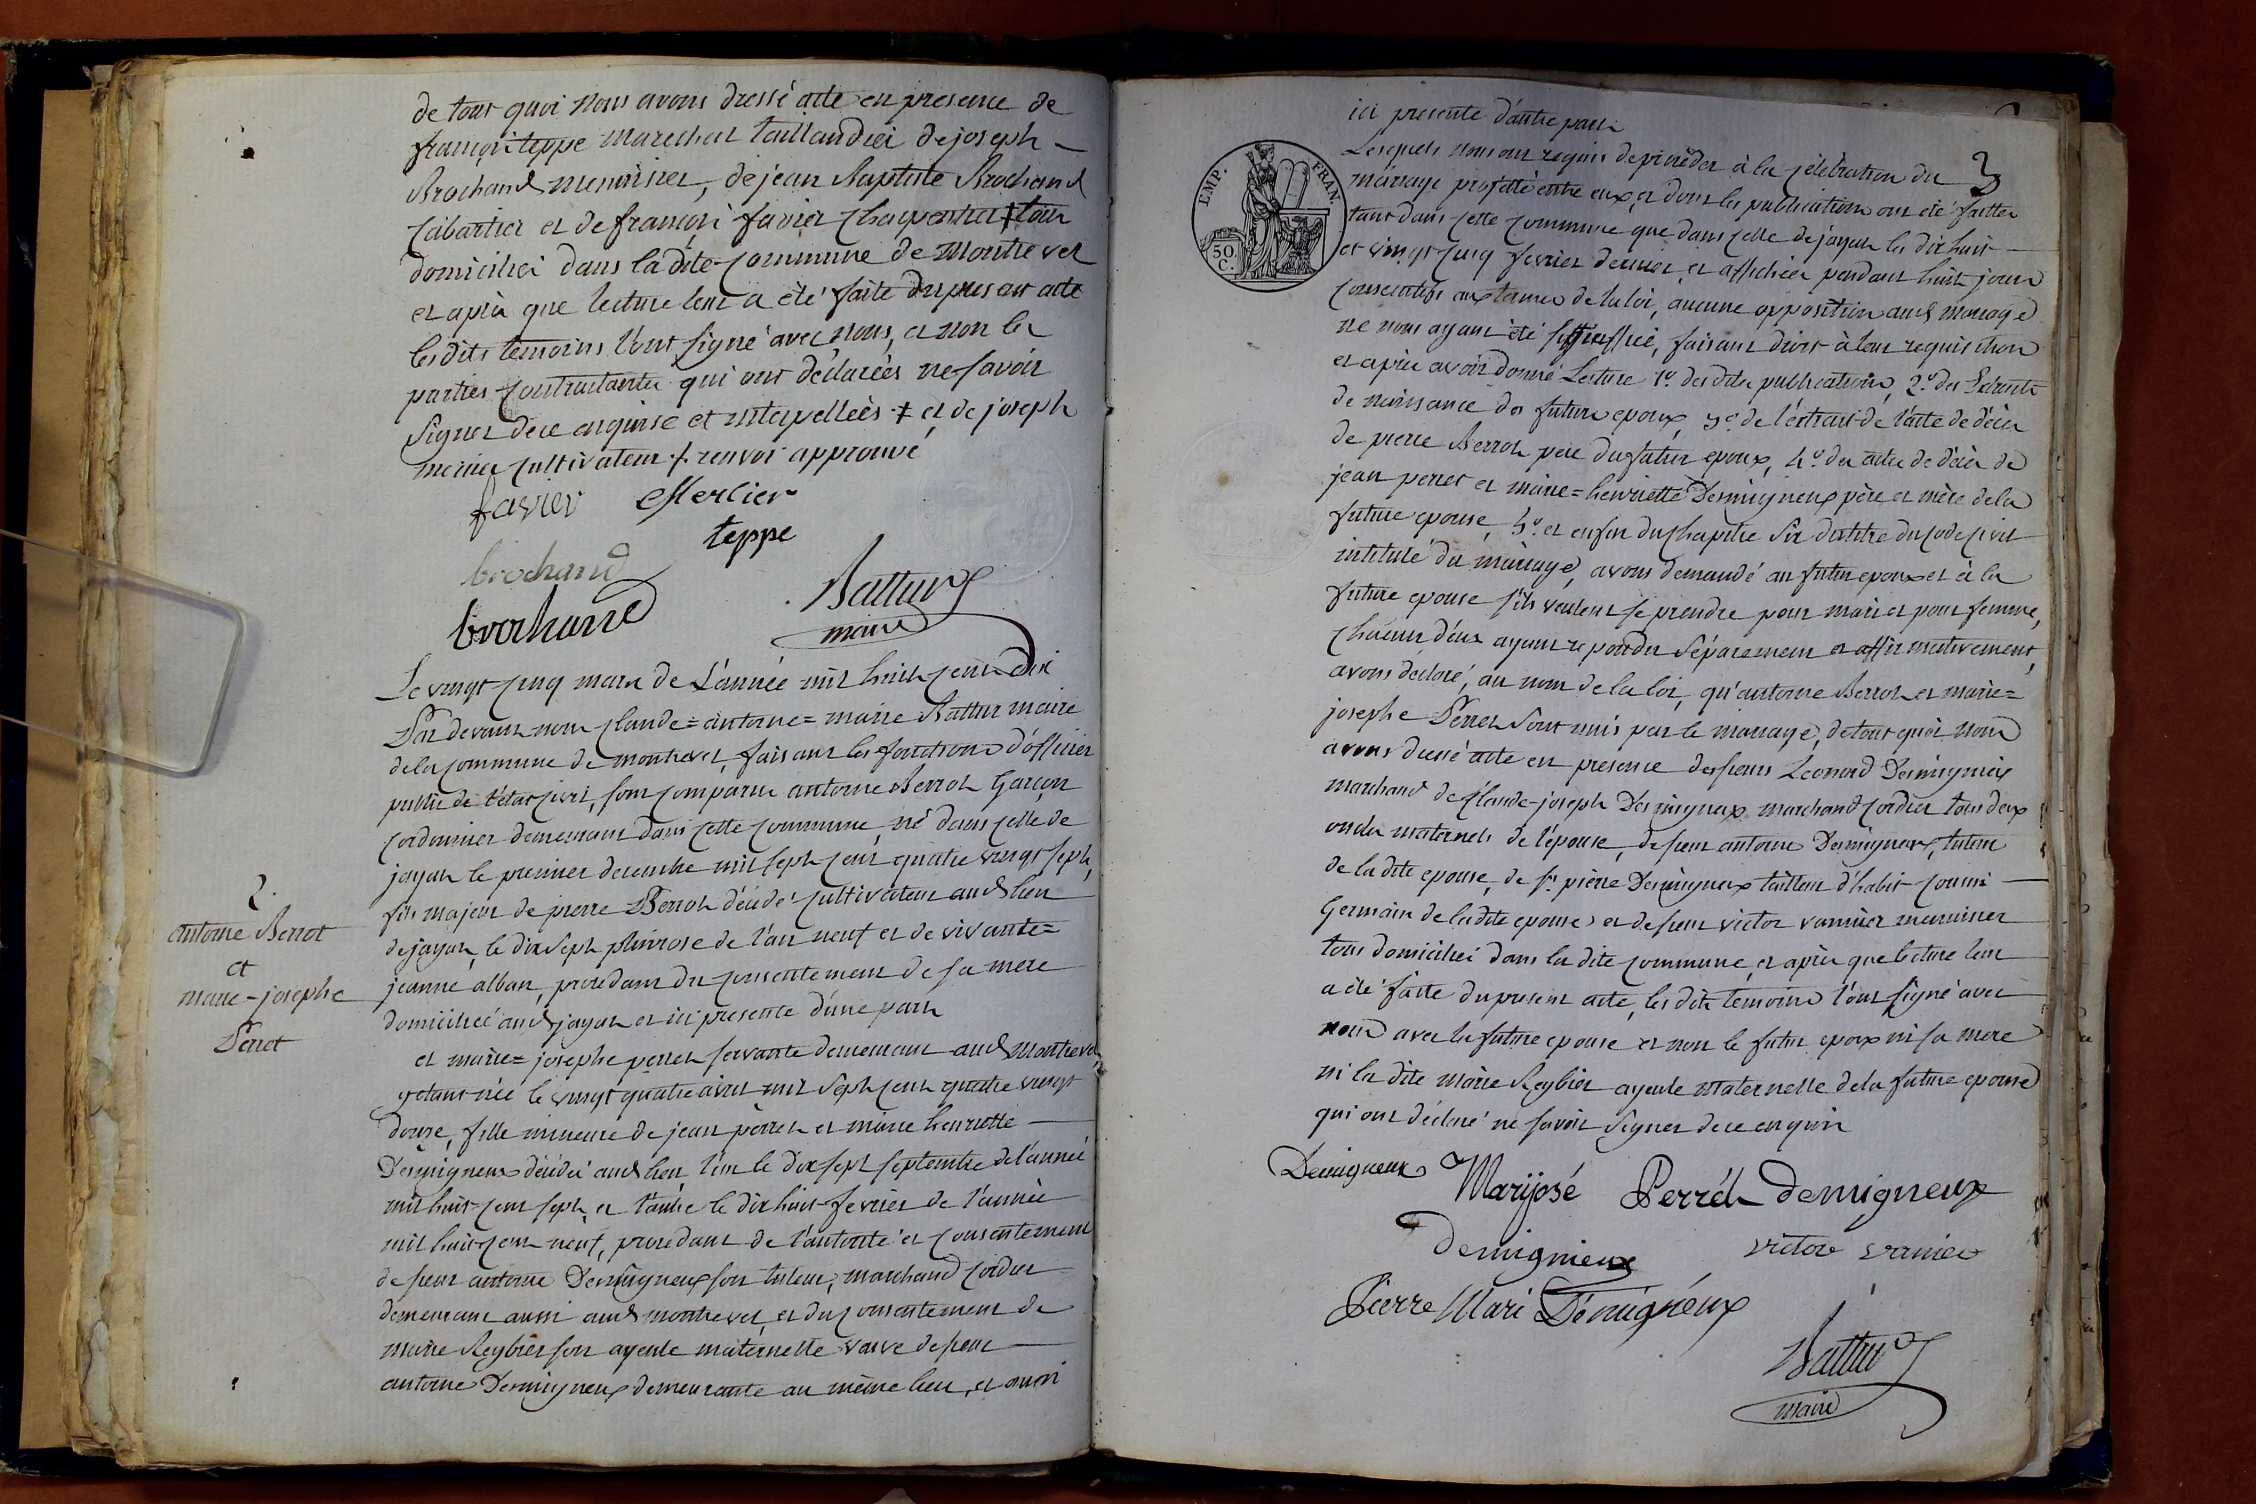 de tout quoi nous avons dressé acte en presence de
françois teppe marechal taillandier de joseph
Brochand menuisier, de jean Baptiste Brochand
Cabartier et de françois favier charpentier ‡ tous
domiciliés dans la dite commune de Montrevel
et après que lecture leur a été faite du present acte
lesdits temoins l'ont signé avec nous, et non les
parties contractantes qui ont déclarées ne savoir
signer de ce enquise et interpellées ‡ et de joseph
mercier cultivateur ‡ renvoi approuvé
favier Mercier
teppe
brochand
brochand
Battur
maire
Le vingt cinq mars de L'année mil huit cent dix
Par devant nous Claude=antoine=marie Battur maire
de la commune de montrevel, faisant les fonctions d'officier
public de l'état civil, sont comparus antoine Berrot Garçon
cordonnier demeurant dans cette commune né dans celle de
jayat le premier decembre mil sept cent quatre vingt sept,
fils majeur de pierre Berrot décédé cultivateur aud lieu
de jayat, le dix sept pluviose de l'an neuf et de vivante=
jeanne alban, procedant du consentement de sa mere
domiciliée aud jayat et ici presente d'une part
2.
antoine Berrot
et
marie-josephe
Perret
et marie=josephe perret servante demeurant aud Montrevel
y étant née le vingt quatre avril mil sept cent quatre vingt
douze, fille mineure de jean perret et marie henriette
Desmigneux décédés aud lieu, l'un le dix sept septembre de l'année
mil huit cent sept, et l'autre le dix huit fevrier de l'année
mil huit cent neuf, procedant de l'autorité et consentement
de sieur antoine Desmigneux son tuteur, marchand cordier
demeurant aussi aud montrevel, et du consentement de
marie Reybier son ayeule maternelle vauve de sieur
antoine Desmigneux demeurante au même lieu, et aussi
ici presente d'autre part
3
EMP. FRAN.
50 C.
Lesquels nous ont requis de procéder à la célébration du
mariage projetté entre eux, et dont les publications ont été faittes
tant dans cette commune que dans celle de jayat les dix huit
et vingt cinq fevrier dernier, et affichées pendant huit jours
consecutifs aux termes de la loi, aucune opposition aud mariage
ne nous ayant été signifiée, faisant droit à leur requisition
et après avoir donné Lecture 1º des dites publications, 2º des Extraits
de naissance des futurs epoux, 3º de l'extrait de l'acte de décès
de pierre Berrot pere du futur epoux, 4º des actes de décès de
jean perret et marie=henriette Desmigneux père et mère de la
future epouse, 5º et enfin du chapitre six du titre du code civil
intitulé du mariage, avons demandé au futur epoux et à la
future epouse s'ils veulent se prendre pour mari et pour femme,
chacun d'eux ayant repondu séparement et affirmativement,
avons declaré, au nom de la loi, qu'antoine Berrot et marie=
josephe Perret sont unis par le mariage, de tout quoi nous
avons dressé acte en presence des sieurs Leonard Desmigneux
marchand de Claude-joseph Desmigneux marchand cordier tous deux
oncles maternels de l'epouse, de sieur antoine Desmigneux, tuteur
de la dite epouse, de sr pierre Desmigneux tailleur d'habit cousin
Germain de la dite epouse, et de sieur victor vannier menuisier
tous domiciliés dans la dite commune, et après que lecture leur
a été faite du present acte, les dits temoins l'ont signé avec
nous avec la future epouse et non le futur epoux ni sa mere
ni la dite Marie Reybier ayeule maternelle de la future epouse
qui ont déclaré ne savoir signer de ce enquis
Demigneux Marijosé Perrét demigneux
demigneux victor vanier
Pierre Mari Démignéux
Battur
maire